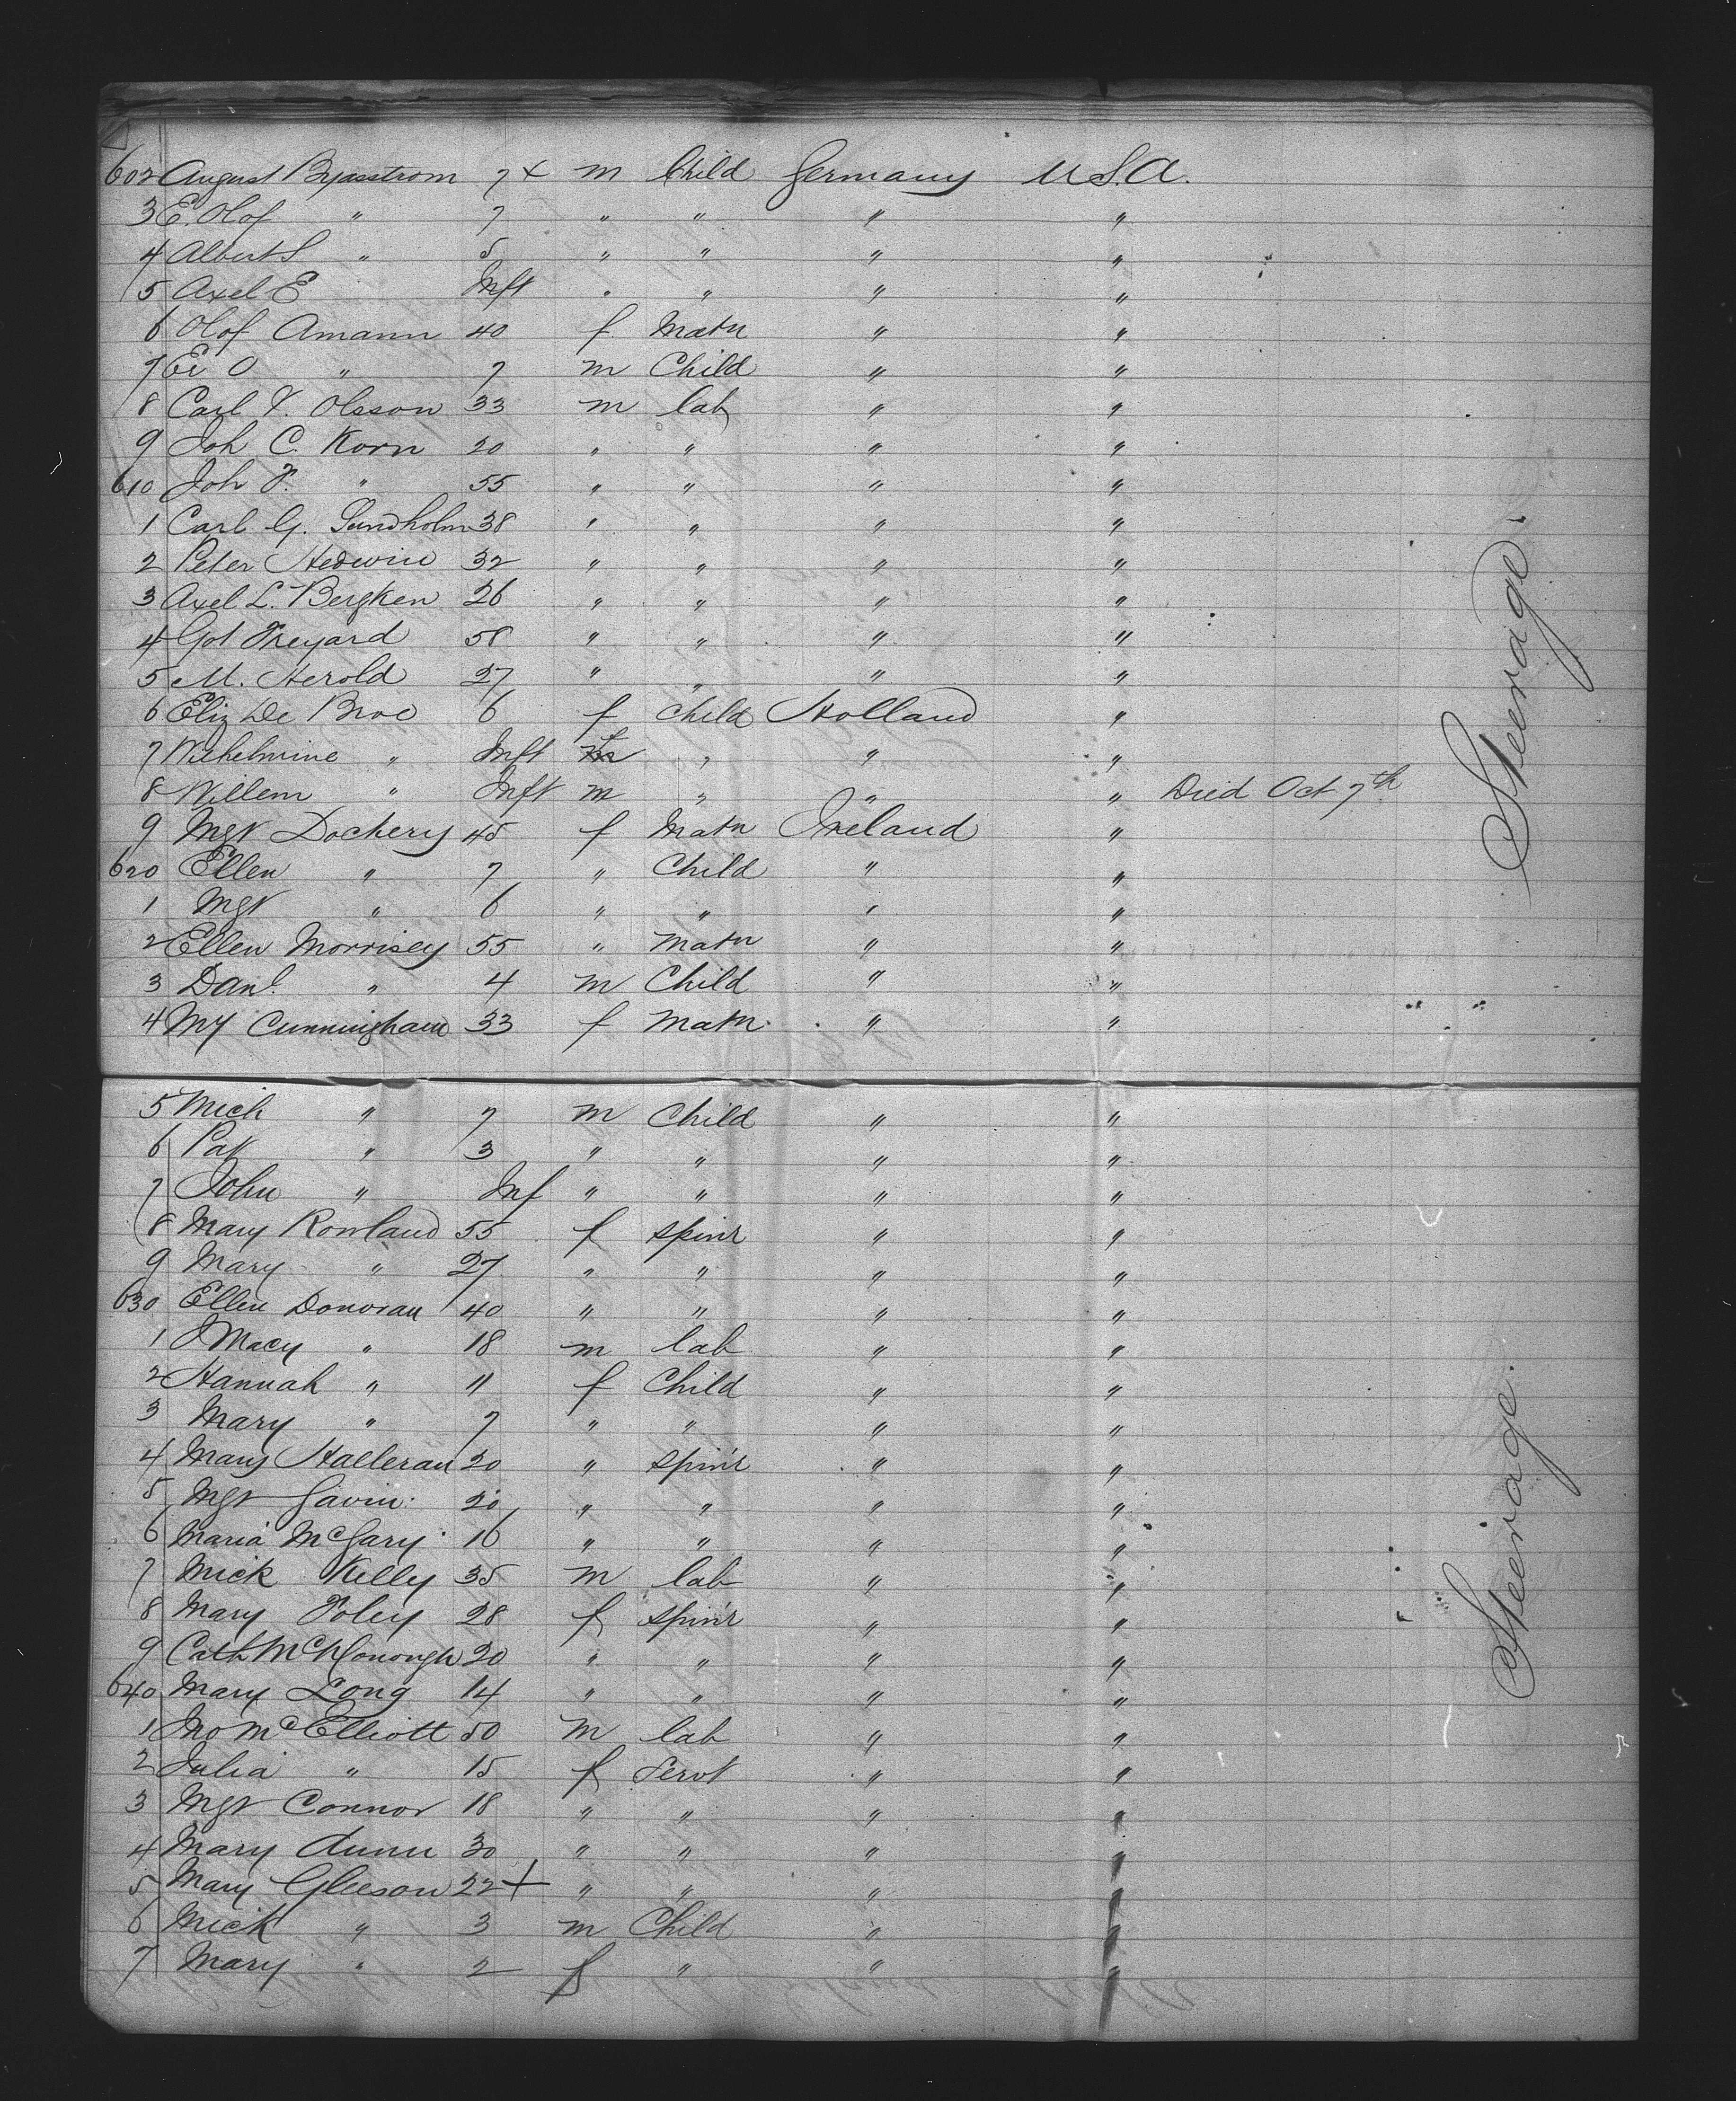 602 August Byasstrom 7 x m Child Germany U.S.A.
3 E. Olof " 7 " " " "
4 Albert S " 5 " " " "
5 Axel E Inft " " " "
6 Olof Amann 40 f. Matn " "
7 Ei O " 7 m Child " "
8 Carl F. Olsson 33 m lab " "
9 Joh C. Korn 20 " " " "
610 Joh F. " 55 " " " "
1 Carl G. Sundholm 38 " " " "
2 Peter Hedwin 32 " " " "
3 Axel L. Bergken 26 " " " "
4 Got Freyard 58 " " " "
5 M. Herold 27 " " " "
6 Eliz De Broe 6 f Child Holland "
7 Wilhelmine " Inft f " " "
8 Willem " Inft m " " " Died Oct 7th
9 Mgt Dochery 45 f Matn Ireland "
620 Ellen " 7 " Child " "
1 Mgt " 6 " " " "
2 Ellen Morrisey 55 " Matn " "
3 Danl. " 4 m Child " "
4 My Cunningham 33 f Matn. " "
5 Mich " 7 m Child " "
6 Pat " 3 " " " "
7 John " Inf " " " "
8 Mary Rowland 55 f spinr " "
9 Mary " 27 " " " "
630 Ellen Donovan 40 " " " "
1 Macy " 18 m lab " "
2 Hannah " 11 f Child " "
3 Mary " 7 " " " "
4 Mary Halleran 20 " spin'r " "
5 Mgt Gavin 20 " " " "
6 Maria McGary 16 " " " "
7 Mick Kelly 35 m lab " "
8 Mary Foley 28 f spin'r " "
9 Cath McDonough 20 " " " "
640 Mary Long 14 " " " "
1 Jno McElliott 50 m lab " "
2 Julia " 15 f Servt " "
3 Mgt Connor 18 " " " "
4 Mary Dunn 30 " " " "
5 Mary Gleeson 22 + " " " "
6 Mick " 3 m Child " "
7 Mary " 2 f " " "
Steerage.
Steerage.